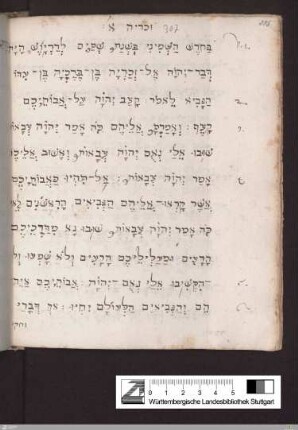 זכריה א 307
בחדש השמיני בשנת שתים לדריוש היה
דבר יהוה אל זכריה בן ברכיה בן עדו
הנביא לאמר קצף יהוה על אבותיכם
קצף ואמרת אליהם כה אמר יהוה צבאות
שובו אלי נאם יהוה צבאות ואשוב אליכם
אמר יהוה צבאות אל תהיו כאבותיכם
אשר קראו אליהם הנביאים הראשנים לא
כה אמר יהוה צבאות שובו נא מדרכיכם
הרעים ומעלליכם הרעים ולא שמעו ול
הקשיבו אלי נאם יהוה אבותיכם איה
הם והנביאים הלעולם יחיו אך דברי
וחקי
Württembergische Landesbibliothek Stuttgart